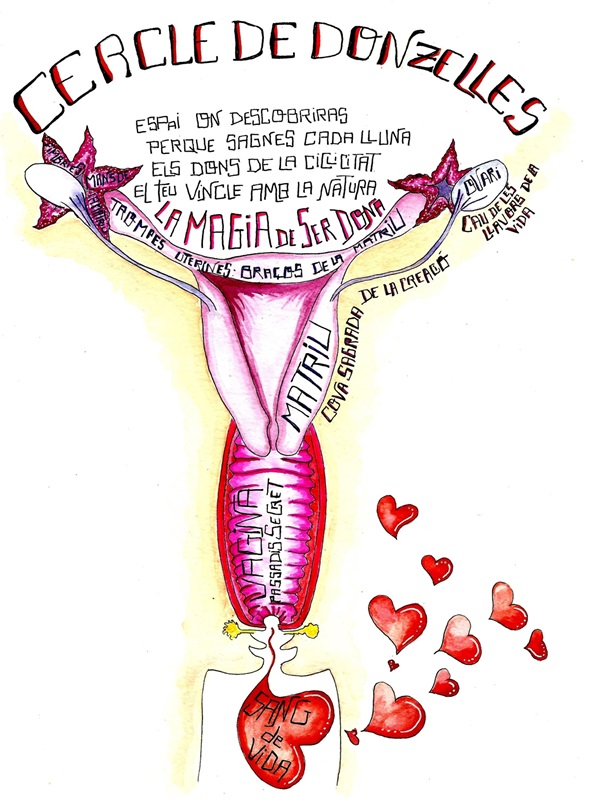 CERCLE DE DONZELLES
ESPAI ON DESCOBRIRAS
PERQUE SAGNES CADA LLUNA
ELS DONS DE LA CICLICITAT
EL TEU VINCLE AMB LA NATURA
LA MAGIA DE SER DONA
TROMPES UTERINES · BRAÇOS DE LA MATRIU
MANS DE
OVARI
CAU DE LES
LLAVORS DE LA
VIDA
MATRIU
COVA SAGRADA DE LA CREACIÓ
VAGINA
PASSADIS SECRET
SANG
de
VIDA